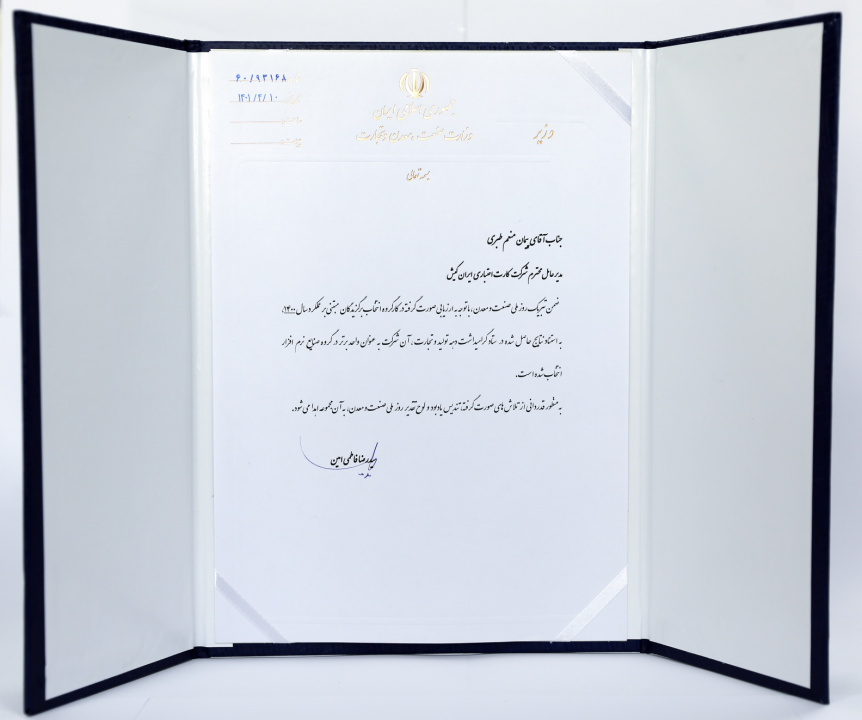 ۶۰/۹۳۱۶۸
۱۴۰۱/۴/۱۰
جمهوری اسلامی ایران
وزارت صنعت، معدن و تجارت
وزیر
بسمه تعالی
جناب آقای پیمان منعم طبری
مدیرعامل محترم شرکت کارت اعتباری ایران کیش
ضمن تبریک روز ملی صنعت و معدن، با توجه به ارزیابی صورت گرفته در کارگروه انتخاب برگزیدگان مبتنی بر عملکرد سال ۱۴۰۰،
به استناد نتایج حاصل شده در ستاد گرامیداشت دهه تولید و تجارت، آن شرکت به عنوان واحد برتر در گروه صنایع نرم افزار
انتخاب شده است.
به منظور قدردانی از تلاش های صورت گرفته، تندیس یادبود و لوح تقدیر روز ملی صنعت و معدن، به آن مجموعه اهدا می شود.
سیدرضا فاطمی امین